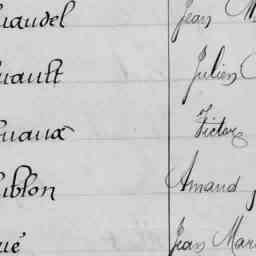 uaudel Jean M
uault Julien
uaux Victor
ublon Amand
ué Jean Mar